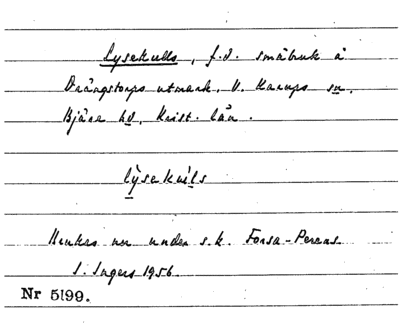 Lysekulls, f.d. småbruk å
Drängstorps utmark, V. Karups sn,
Bjäre hd, Krist. län.
lýsekul̀s
nu under s.k. Forsa-Perens
I. Ingers 1956.
Nr 5199.